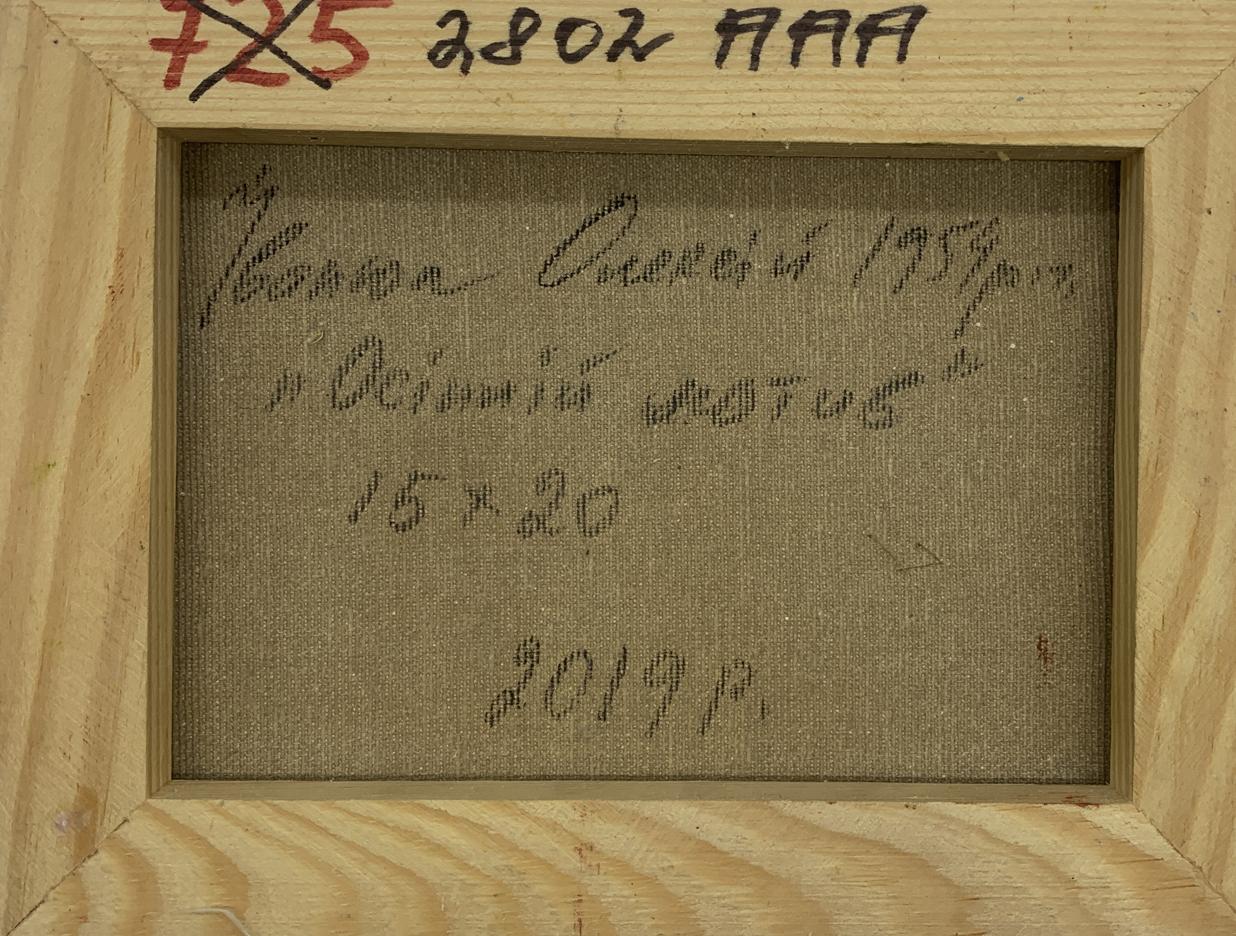 725 2802 AAA
Олексій 1959 р.н.
"Осінній мотив"
15 x 20
2019 р.